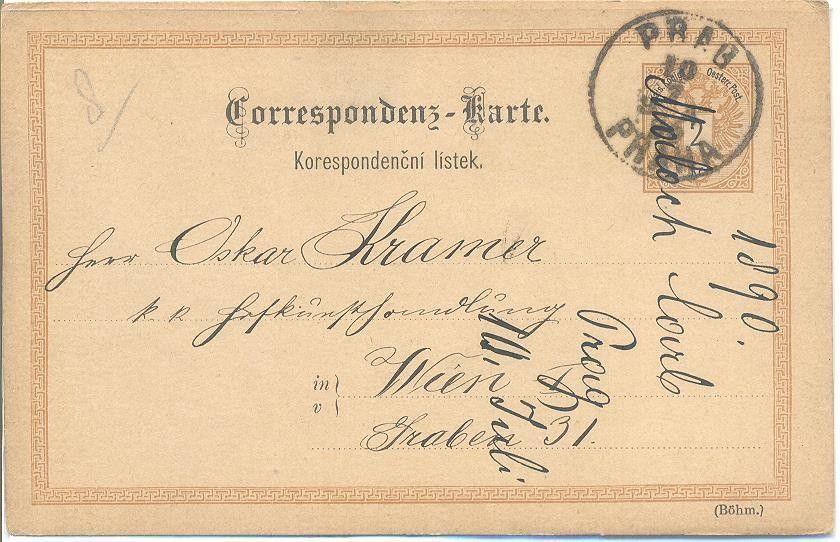 8/
PRAG
10
PRAHA
Oester. Post.
2
Correspondenz-Karte.
Korespondenční lístek.
Herr Oskar Kramer
k. k. Hofkunsthandlung
in
v
Wien
Graben 31.
1890.
Prag
10. Juli
(Böhm.)